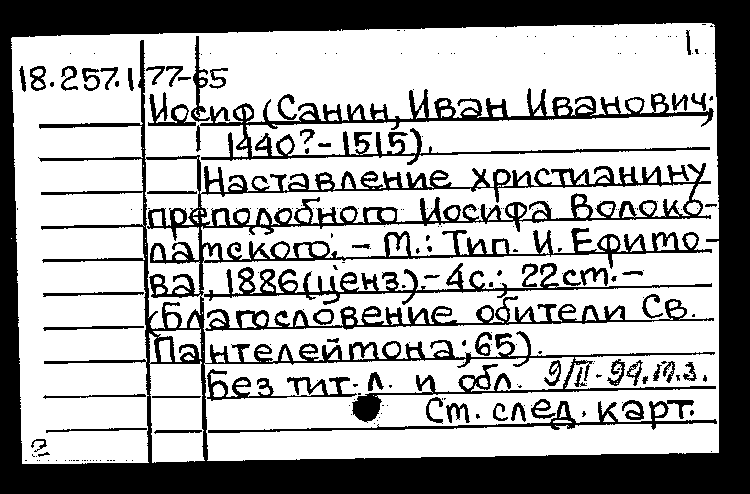 1.
18.257.1.77-65
Иосиф (Санин, Иван Иванович;
1440?-1515).
Наставление христианину
преподобного Иосифа Волоко-
ламского. - М.: Тип. И. Ефимо-
ва, 1886 (ценз.).- 4с.; 22см.-
(Благословение обители Св.
Пантелеймона; 65).
Без тит. л. и обл. 9/II-94.
См. след. карт.
2